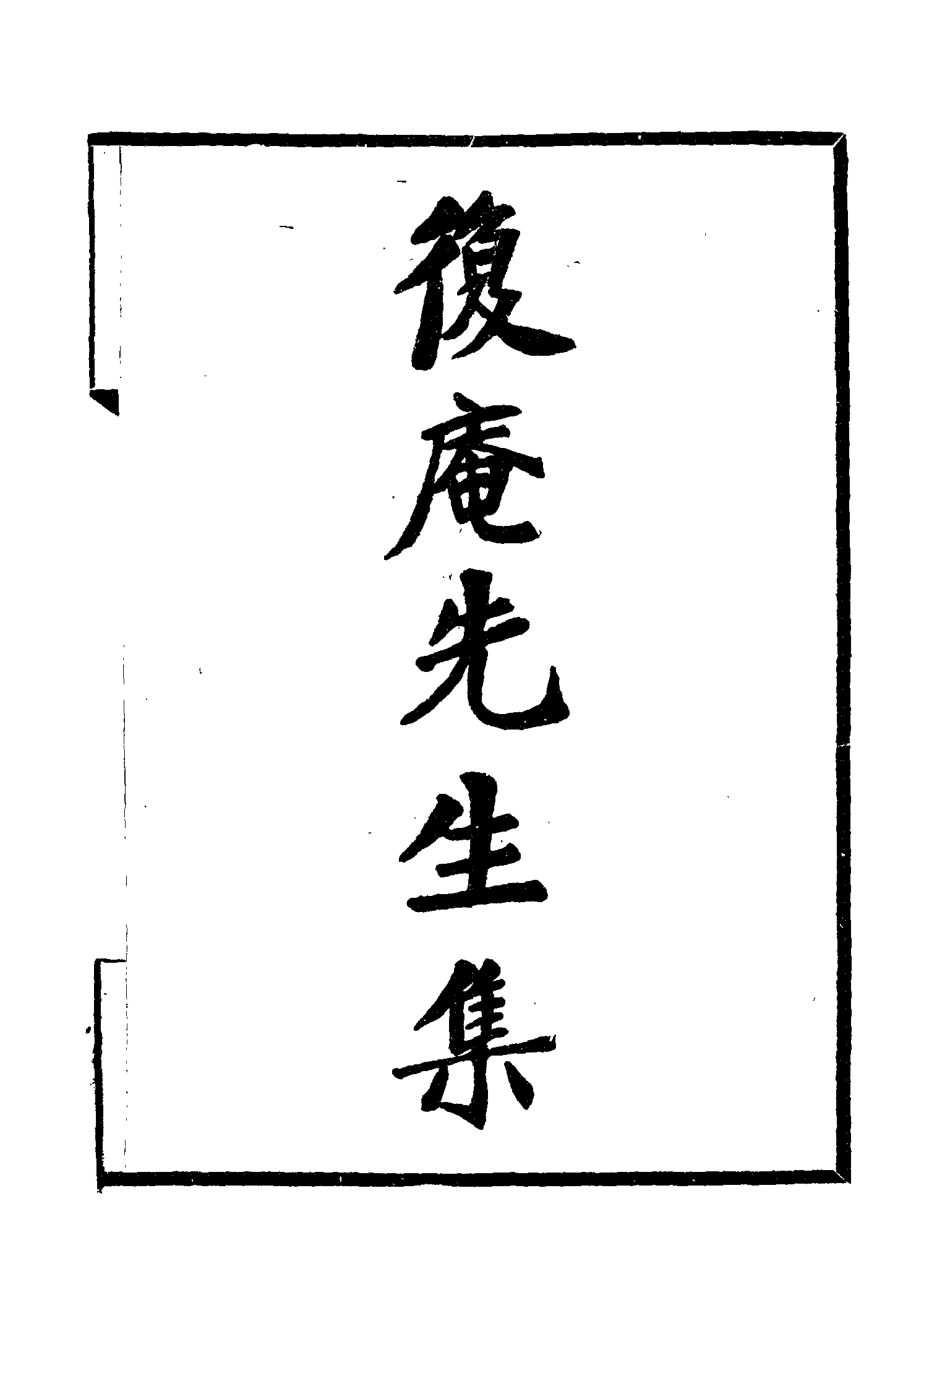 復庵先生集